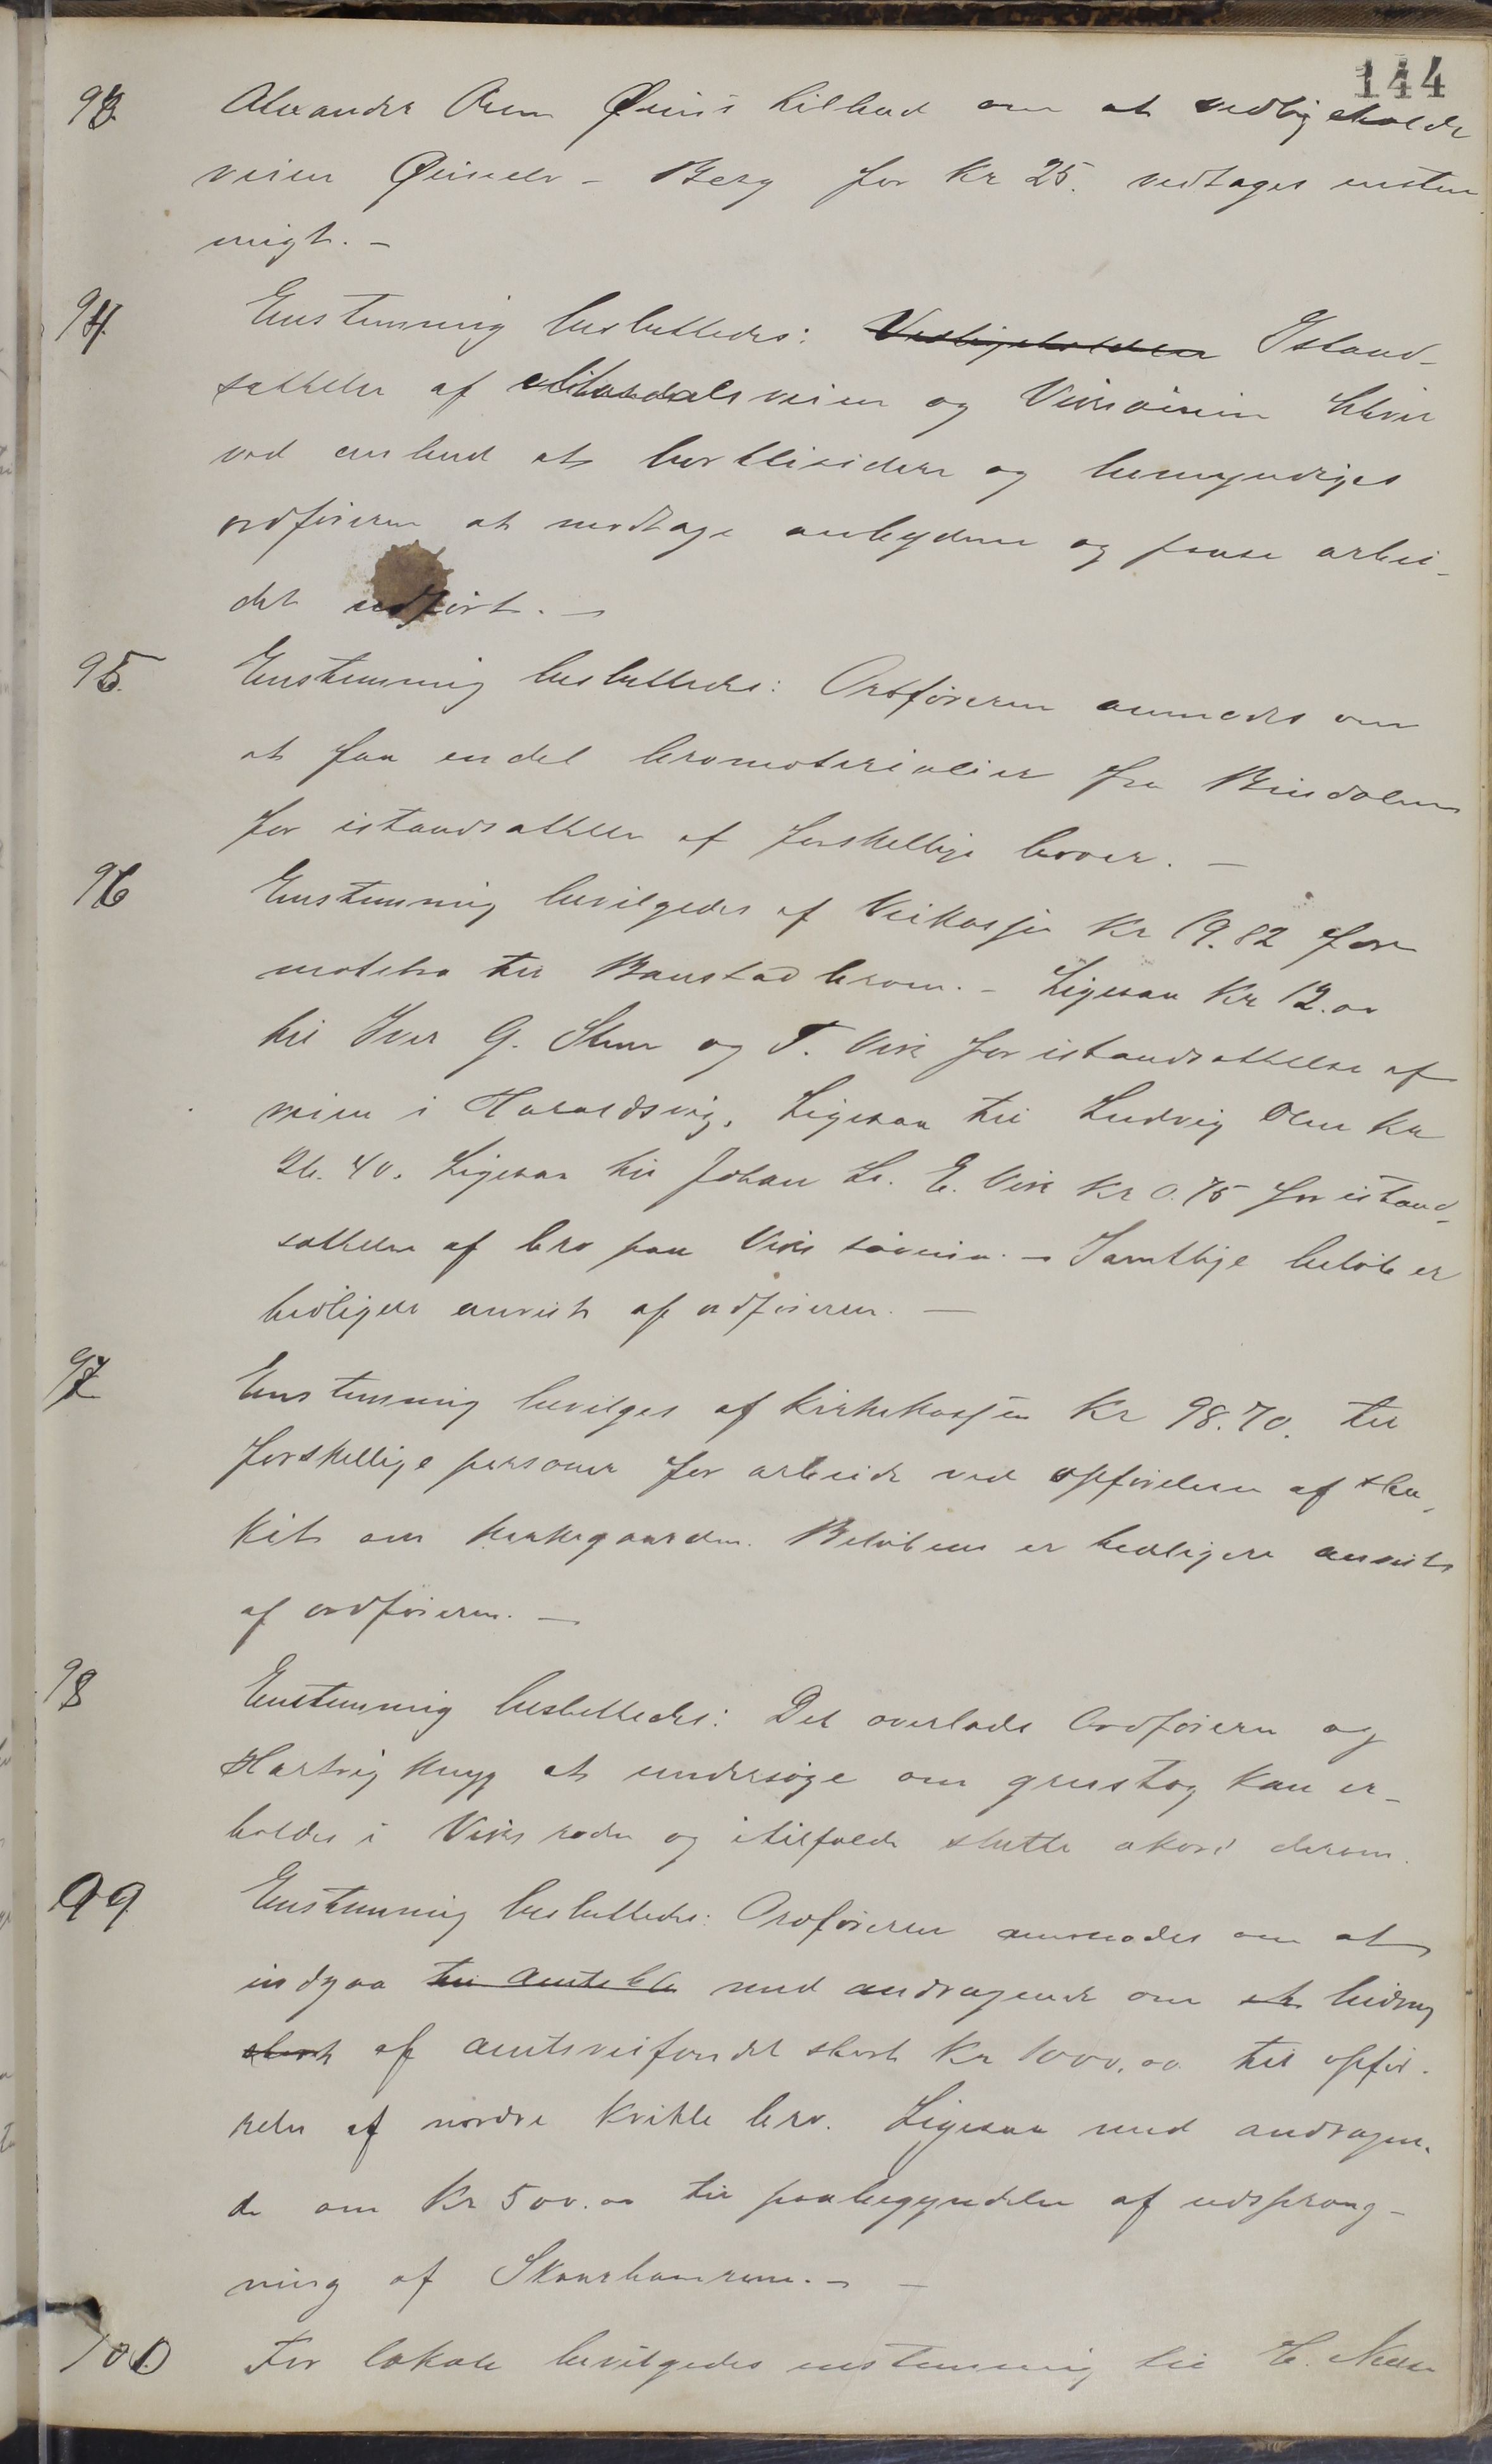 144
93. Alexander Oren Øiens tilbud om at vedligeholde
veien Øiself - Berg for Kr 25. vedtages enstem
migt. -
94. Enstemmig besluttedes: Vedligeholden Istand-
sættelse af veien og Viksveien bliver
ved anbud at bortlicidere og bemyndiges
ordføreren at modtage anbydene og faa arbei-
det udført. -
95. Enstemmig besluttedes: Ordføreren anmodes om
at faa endel bromaterialier fra Bindalen
for istandsættelse af forskellige broer. -
96 Enstemmig bevilgedes af Veikassen Kr 19.82 for
materialer til Banstad broen. - Ligesaa Kr 12.00
til Iver G. Steen og T. Vik for istandsættelse af
veien i Haraldsvig. Ligesaa til Ludvig Olsen Kr
26.40. Ligesaa til Johan L. E. Vik Kr 0.75 for istand-
sættelse af bro paa Viks søveien. - Samtlige beløb er
tidligere anvist af ordføreren. -
97 Enstemmig bevilges af Kirkekassen Kr 98.70. til
forskellige personer for arbeide ved opførelsen af sta-
kit om kirkegaarden. Beløbene er tidligere anvist
af ordføreren. -
98 Enstemmig besluttedes: Det overlades Ordføreren og
Hartvig Krygg at undersøge om grustag kan er-
holdes i Viks roden og itilfælde slutte akord derom.
99 Enstemmig besluttedes: Ordføreren anmodes om at
indgaa til Amtets med andragende om et bidrag
stort af amtsveifondet stort Kr 1000,00 til opfø-
relse af nordre Kvikle bro. Ligesaa med andragen-
de om Kr 500.00 til paabegyndelse af udspræng-
ning af Skaarhammeren. -
100 For lokale bevilgedes enstemmig til H.